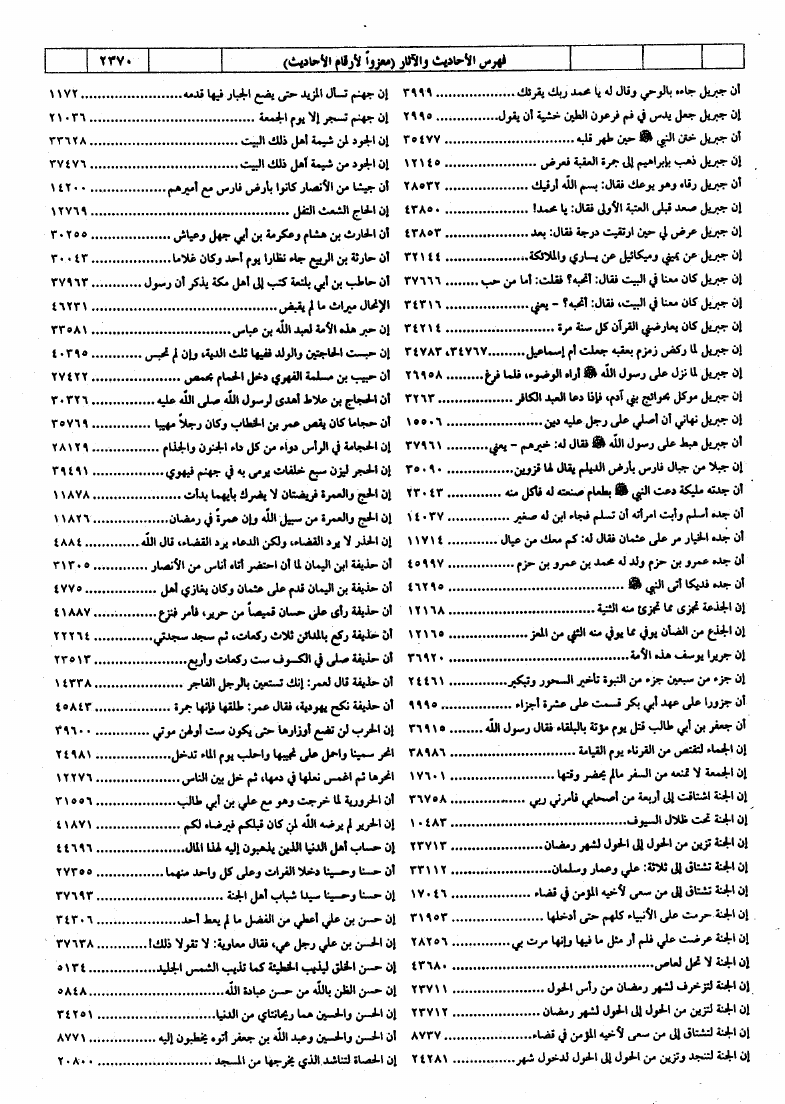 فهرس الأحاديث والآثار (معزواً لأرقام الأحاديث)
٢٣٧٠
أن جبريل جاءه بالوحي وقال له يا محمد ربك يقرئك .................. ٣٩٩٩
إن جبريل جعل يدس في فم فرعون الطين خشية أن يقول .................. ٢٩٩٥
أن جبريل ختن النبي ﷺ حين طهر قلبه .................. ٣٥٤٧٧
إن جبريل ذهب بإبراهيم إلى جمرة العقبة فعرض .................. ١٢١٤٥
أن جبريل رقاه وهو يوعك فقال: بسم الله أرقيك .................. ٢٨٥٣٢
إن جبريل صعد قبلي العتبة الأولى فقال: يا محمد! .................. ٤٣٨٥٠
إن جبريل عرض لي حين ارتقيت درجة فقال: بعد .................. ٤٣٨٥٣
إن جبريل عن يميني وميكائيل عن يساري والملائكة .................. ٣٢١٤٤
إن جبريل كان معنا في البيت فقال: أتحبه؟ فقلت: أما من حب .................. ٣٧٦٦٦
إن جبريل كان معنا في البيت، فقال: أتحبه؟ - يعني .................. ٣٤٣١٦
إن جبريل كان يعارضني القرآن كل سنة مرة .................. ٣٤٢١٤
إن جبريل لما ركض زمزم بعقبه جعلت أم إسماعيل .................. ٣٤٧٦٧، ٣٤٧٨٣
إن جبريل لما نزل على رسول الله ﷺ أراه الوضوء، فلما فرغ .................. ٢٦٩٥٨
إن جبريل موكل بحوائج بني آدم، فإذا دعا العبد الكافر .................. ٣٢٦٣
إن جبريل نهاني أن أصلي على رجل عليه دين .................. ١٥٥٠٦
أن جبريل هبط على رسول الله ﷺ فقال له: خيرهم - يعني .................. ٣٧٩٦١
إن جبلا من جبال فارس بأرض الديلم يقال لها قزوين .................. ٣٥٠٩٠
أن جدته مليكة دعت النبي ﷺ بطعام صنعته له فأكل منه .................. ٢٣٠٤٣
أن جده أسلم وأبت امرأته أن تسلم فجاء ابن له صغير .................. ١٤٠٣٧
أن جده الخيار مر على عثمان فقال له: كم معك من عيال .................. ١١٧١٤
أن جده عمرو بن حزم ولد له محمد بن عمرو بن حزم .................. ٤٥٩٩٧
أن جده فديكا أتى النبي ﷺ .................. ٤٦٢٩٥
إن الجذعة تجزى مما تجزئ منه الثنية .................. ١٢١٦٨
إن الجذع من الضأن يوفي مما يوفي منه الثني من المعز .................. ١٢١٦٥
إن جريرا يوسف هذه الأمة .................. ٣٦٩٢٠
إن جزء من سبعين جزء من النبوة تأخير السحور وتبكير .................. ٢٤٤٦١
أن جزورا على عهد أبي بكر قسمت على عشرة أجزاء .................. ٩٩٩٥
أن جعفر بن أبي طالب قتل يوم مؤتة بالبلقاء فقال رسول الله .................. ٣٦٩١٥
إن الجماء لتقتص من القرناء يوم القيامة .................. ٣٨٩٨٦
إن الجمعة لا تمنعه من السفر مالم يحضر وقتها .................. ١٧٦٠١
إن الجنة اشتاقت إلى أربعة من أصحابي فأمرني ربي .................. ٣٦٧٥٨
إن الجنة تحت ظلال السيوف .................. ١٠٤٨٣
إن الجنة تزين من الحول إلى الحول لشهر رمضان .................. ٢٣٧١٣
إن الجنة تشتاق إلى ثلاثة: علي وعمار وسلمان .................. ٣٣١١٢
إن الجنة تشتاق إلى من سعى لأخيه المؤمن في قضاء .................. ١٧٠٤٦
إن الجنة حرمت على الأنبياء كلهم حتى أدخلها .................. ٣١٩٥٣
إن الجنة عرضت علي فلم أر مثل ما فيها وإنها مرت بي .................. ٢٨٢٥٦
إن الجنة لا تحل لعاص .................. ٤٣٦٨٠
إن الجنة لتزخرف لشهر رمضان من رأس الحول .................. ٢٣٧١١
إن الجنة لتزين من الحول إلى الحول لشهر رمضان .................. ٢٣٧١٢
إن الجنة لتشتاق إلى من سعى لأخيه المؤمن في قضاء .................. ٨٧٣٧
إن الجنة لتنجد وتزين من الحول إلى الحول لدخول شهر .................. ٢٤٢٨١
إن جهنم تسأل المزيد حتى يضع الجبار فيها قدمه .................. ١١٧٢
إن جهنم تسجر إلا يوم الجمعة .................. ٢١٠٣٦
إن الجود لمن شيمة أهل ذلك البيت .................. ٣٣٦٢٨
إن الجود من شيمة أهل ذلك البيت .................. ٣٧٤٧٦
أن جيشا من الأنصار كانوا بأرض فارس مع أميرهم .................. ١٤٢٠٠
إن الحاج الشعث التفل .................. ١٢٧٦٩
أن الحارث بن هشام وعكرمة بن أبي جهل وعياش .................. ٣٠٢٥٥
أن حارثة بن الربيع جاء نظارا يوم أحد وكان غلاما .................. ٣٠٠٤٣
أن حاطب بن أبي بلتعة كتب إلى أهل مكة يذكر أن رسول .................. ٣٧٩٦٣
الإنحال ميراث ما لم يقبض .................. ٤٦٢٣١
إن حبر هذه الأمة لعبد الله بن عباس .................. ٣٣٥٨١
إن حبست الحاجتين والولد ففيها ثلث الدية، وإن لم تحبس .................. ٤٠٣٩٥
أن حبيب بن مسلمة الفهري دخل الحمام بحمص .................. ٢٧٤٢٢
أن الحجاج بن علاط أهدى لرسول الله صلى الله عليه .................. ٣٠٣٢٦
أن حجاما كان يقص عمر بن الخطاب وكان رجلاً مهيبا .................. ٣٥٧٦٩
إن الحجامة في الرأس دواء من كل داء الجنون والجذام .................. ٢٨١٢٩
إن الحجر ليزن سبع خلفات يرمى به في جهنم فيهوي .................. ٣٩٤٩١
إن الحج والعمرة فريضتان لا يضرك بأيهما بدأت .................. ١١٨٧٨
إن الحج والعمرة من سبيل الله وإن عمرة في رمضان .................. ١١٨٢٦
إن الحذر لا يرد القضاء، ولكن الدعاء يرد القضاء، قال الله .................. ٤٨٨٤
أن حذيفة ابن اليمان لما أن احتضر أتاه أناس من الأنصار .................. ٣١٣٠٥
أن حذيفة بن اليمان قدم على عثمان وكان يغازي أهل .................. ٤٧٧٥
أن حذيفة رأى على حسان قميصاً من حرير، فأمر فنزع .................. ٤١٨٨٧
أن حذيفة ركع بالمدائن ثلاث ركعات، ثم سجد سجدتي .................. ٢٢٢٦٤
أن حذيفة صلى في الكسوف ست ركعات وأربع .................. ٢٣٥١٣
أن حذيفة قال لعمر: إنك تستعين بالرجل الفاجر .................. ١٤٣٣٨
أن حذيفة نكح يهودية، فقال عمر: طلقها فإنها جمرة .................. ٤٥٨٤٣
إن الحرب لن تضع أوزارها حتى يكون ست أولهن موتي .................. ٣٩٦٠٠
انحر سمينا واحمل على نجيبها واحلب يوم الماء تدخل .................. ٢٤٩٨١
انحرها ثم اغمس نعلها في دمها، ثم خل بين الناس .................. ١٢٢٧٦
أن الحرورية لما خرجت وهو مع علي بن أبي طالب .................. ٣١٥٥٦
إن الحرير لم يرضه الله لمن كان قبلكم فيرضاه لكم .................. ٤١٨٧١
إن حساب أهل الدنيا الذين يذهبون إليه لهذا المال .................. ٤٤٦٩٦
أن حسنا وحسينا دخلا الفرات وعلى كل واحد منهما .................. ٢٧٣٥٥
إن حسنا وحسينا سيدا شباب أهل الجنة .................. ٣٧٦٩٣
إن حسن بن علي أعطي من الفضل ما لم يعط أحد .................. ٣٤٣٠٦
إن الحسن بن علي رجل عي، فقال معاوية: لا تقولا ذلك! .................. ٣٧٦٣٨
إن حسن الخلق ليذيب الخطيئة كما تذيب الشمس الجليد .................. ٥١٣٤
إن حسن الظن بالله من حسن عبادة الله .................. ٥٨٤٨
إن الحسن والحسين هما ريحانتاي من الدنيا .................. ٣٤٢٥١
أن الحسن والحسين وعبد الله بن جعفر أتوه يخطبون إليه .................. ٨٧٧١
إن الحصاة لتناشد الذي يخرجها من المسجد .................. ٢٠٨٠٠